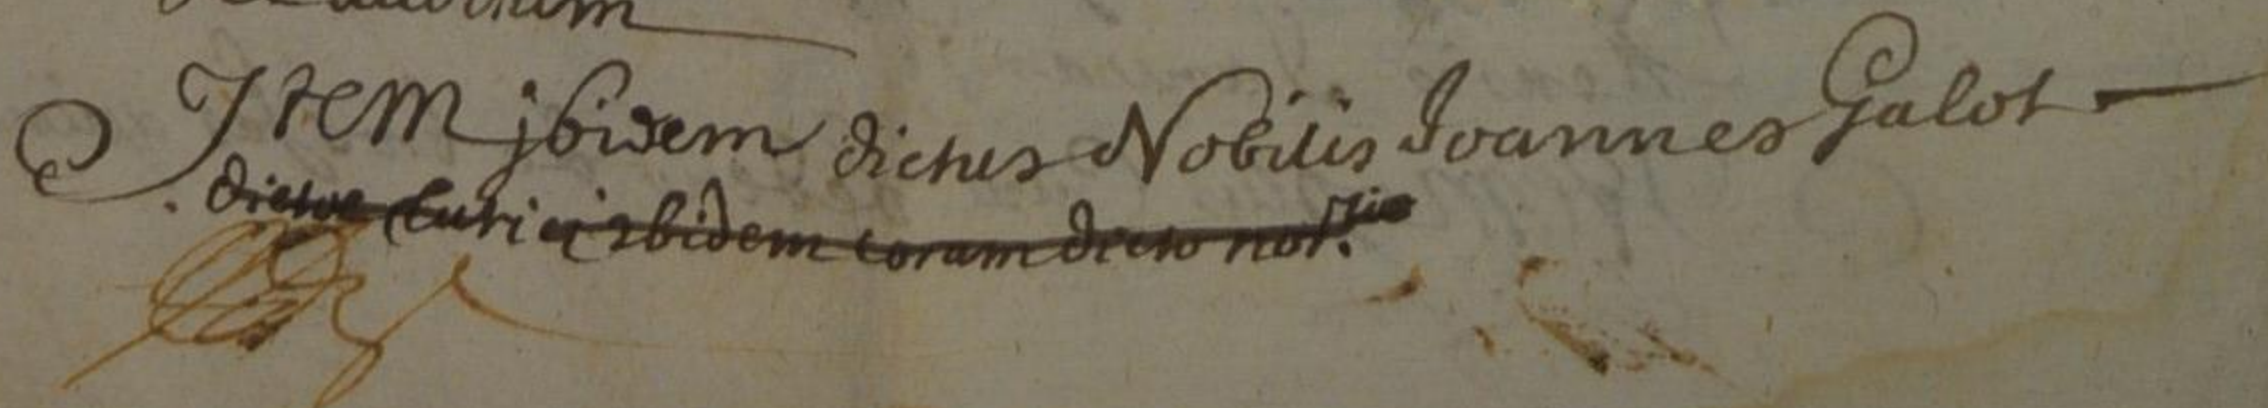 Item jbidem dictus Nobilis Joannes Galot
dictae Curiae ibidem coram dicto not.rio